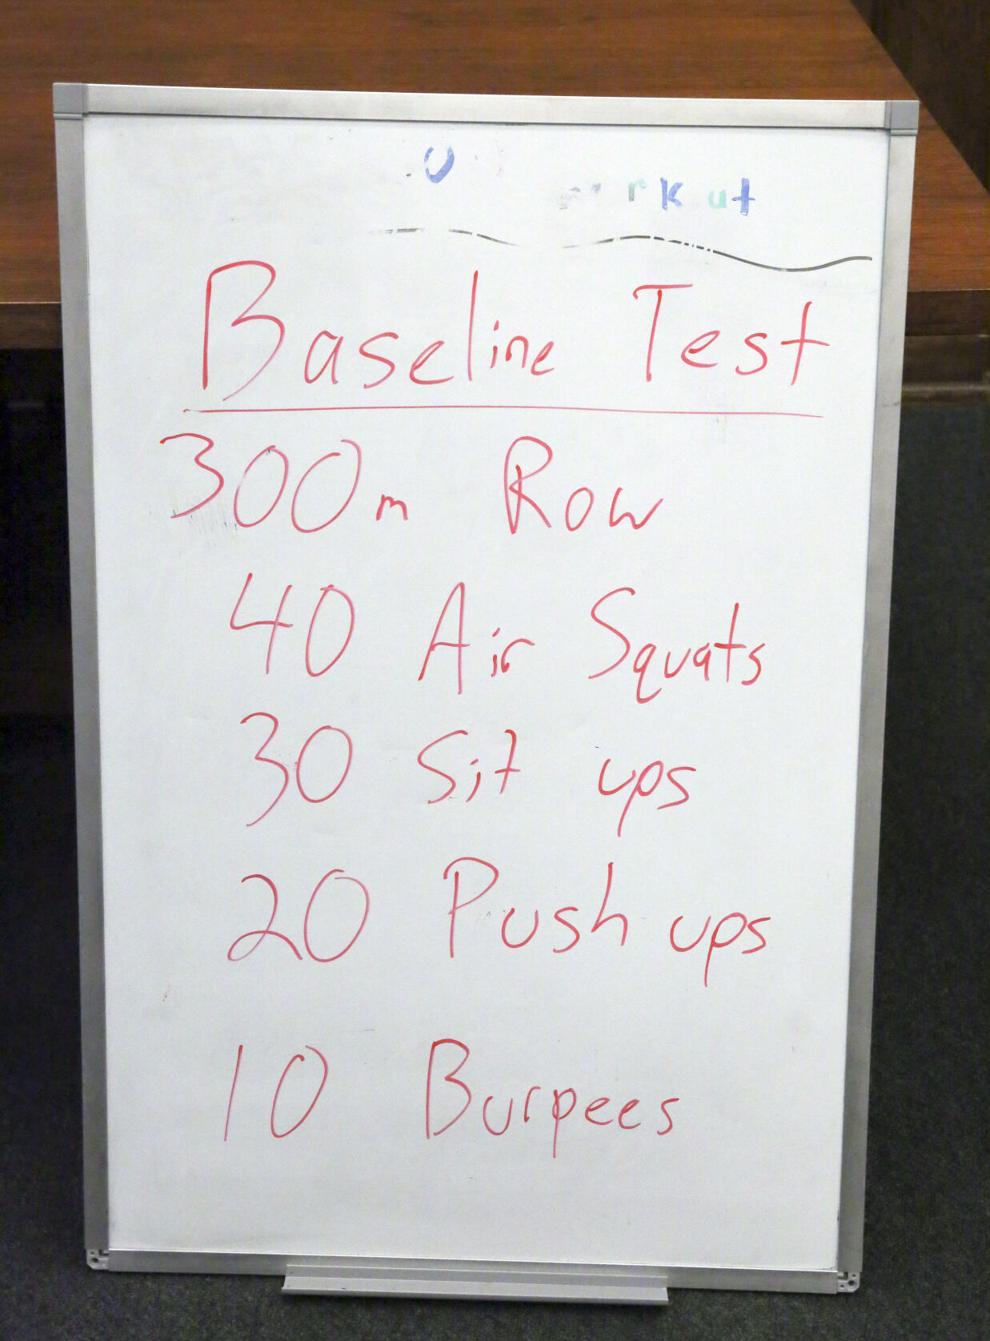 Baseline Test
300m Row
40 Air Squats
30 Sit ups
20 Push ups
10 Burpees